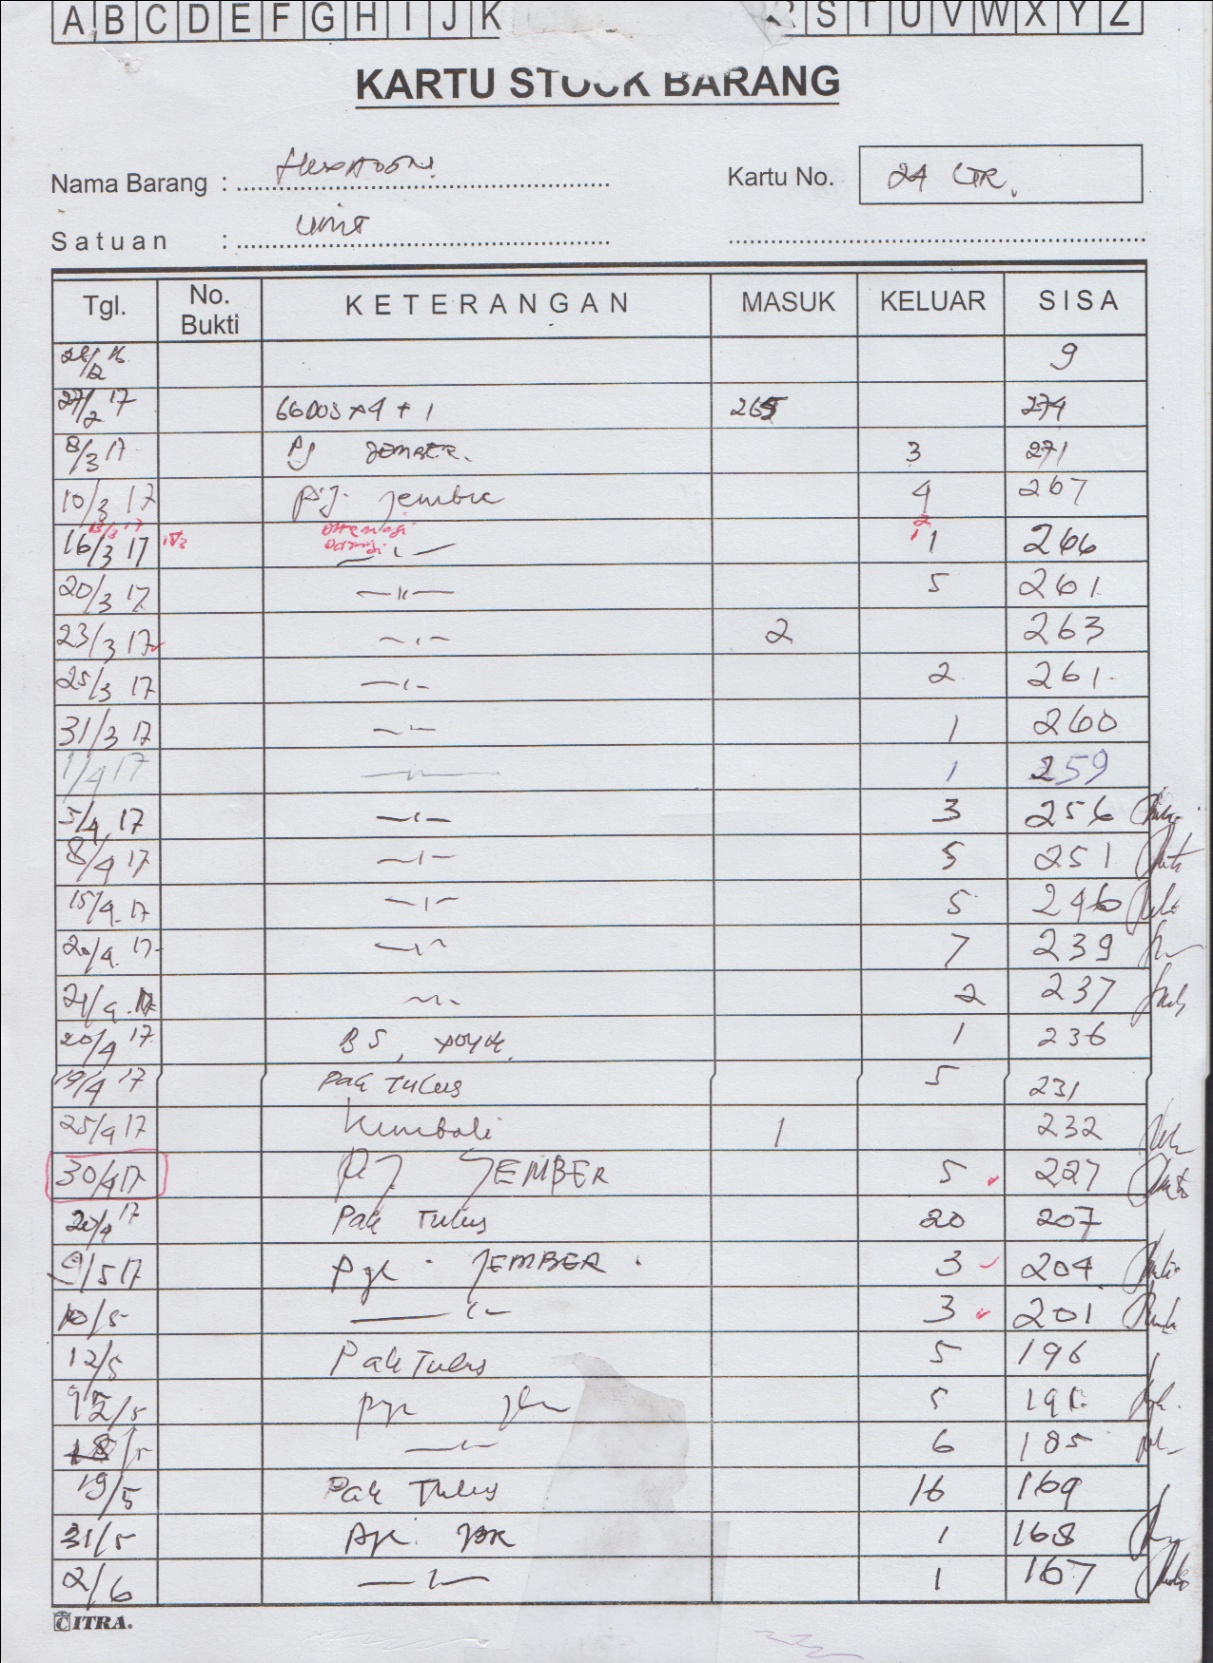 A B C D E F G H I J K S T U V W X Y Z
KARTU STOCK BARANG
Nama Barang :
Kartu No. 24 LTR.
Satuan : unit
Tgl. No. Bukti KETERANGAN MASUK KELUAR SISA
9
27/2 17 66 DOS x 4 + 1 265 274
8/3 17 PJ JEMBER. 3 271
10/3 17 PJ. Jember 4 267
13/3 17
16/3 17 1 266
20/3 17 —"— 5 261
23/3 17 —"— 2 263
25/3 17 —"— 2 261
31/3 17 —"— 1 260
1/4 17 —"— 1 259
5/4 17 —"— 3 256
8/4 17 —"— 5 251
15/4.17 —"— 5 246
20/4.17 —"— 7 239
21/4.17 —"— 2 237
20/4 17 BS, 1 236
19/4 17 Pak Tulus 5 231
25/4 17 Kembali 1 232
30/4 17 PJ JEMBER 5 227
17 Pak Tulus 20 207
9/5 17 Pgk JEMBER. 3 204
10/5 —"— 3 201
12/5 Pak Tulus 5 196
5 191
18/5 —"— 6 185
19/5 Pak Tulus 16 169
31/5 1 168
2/6 —"— 1 167
CITRA.